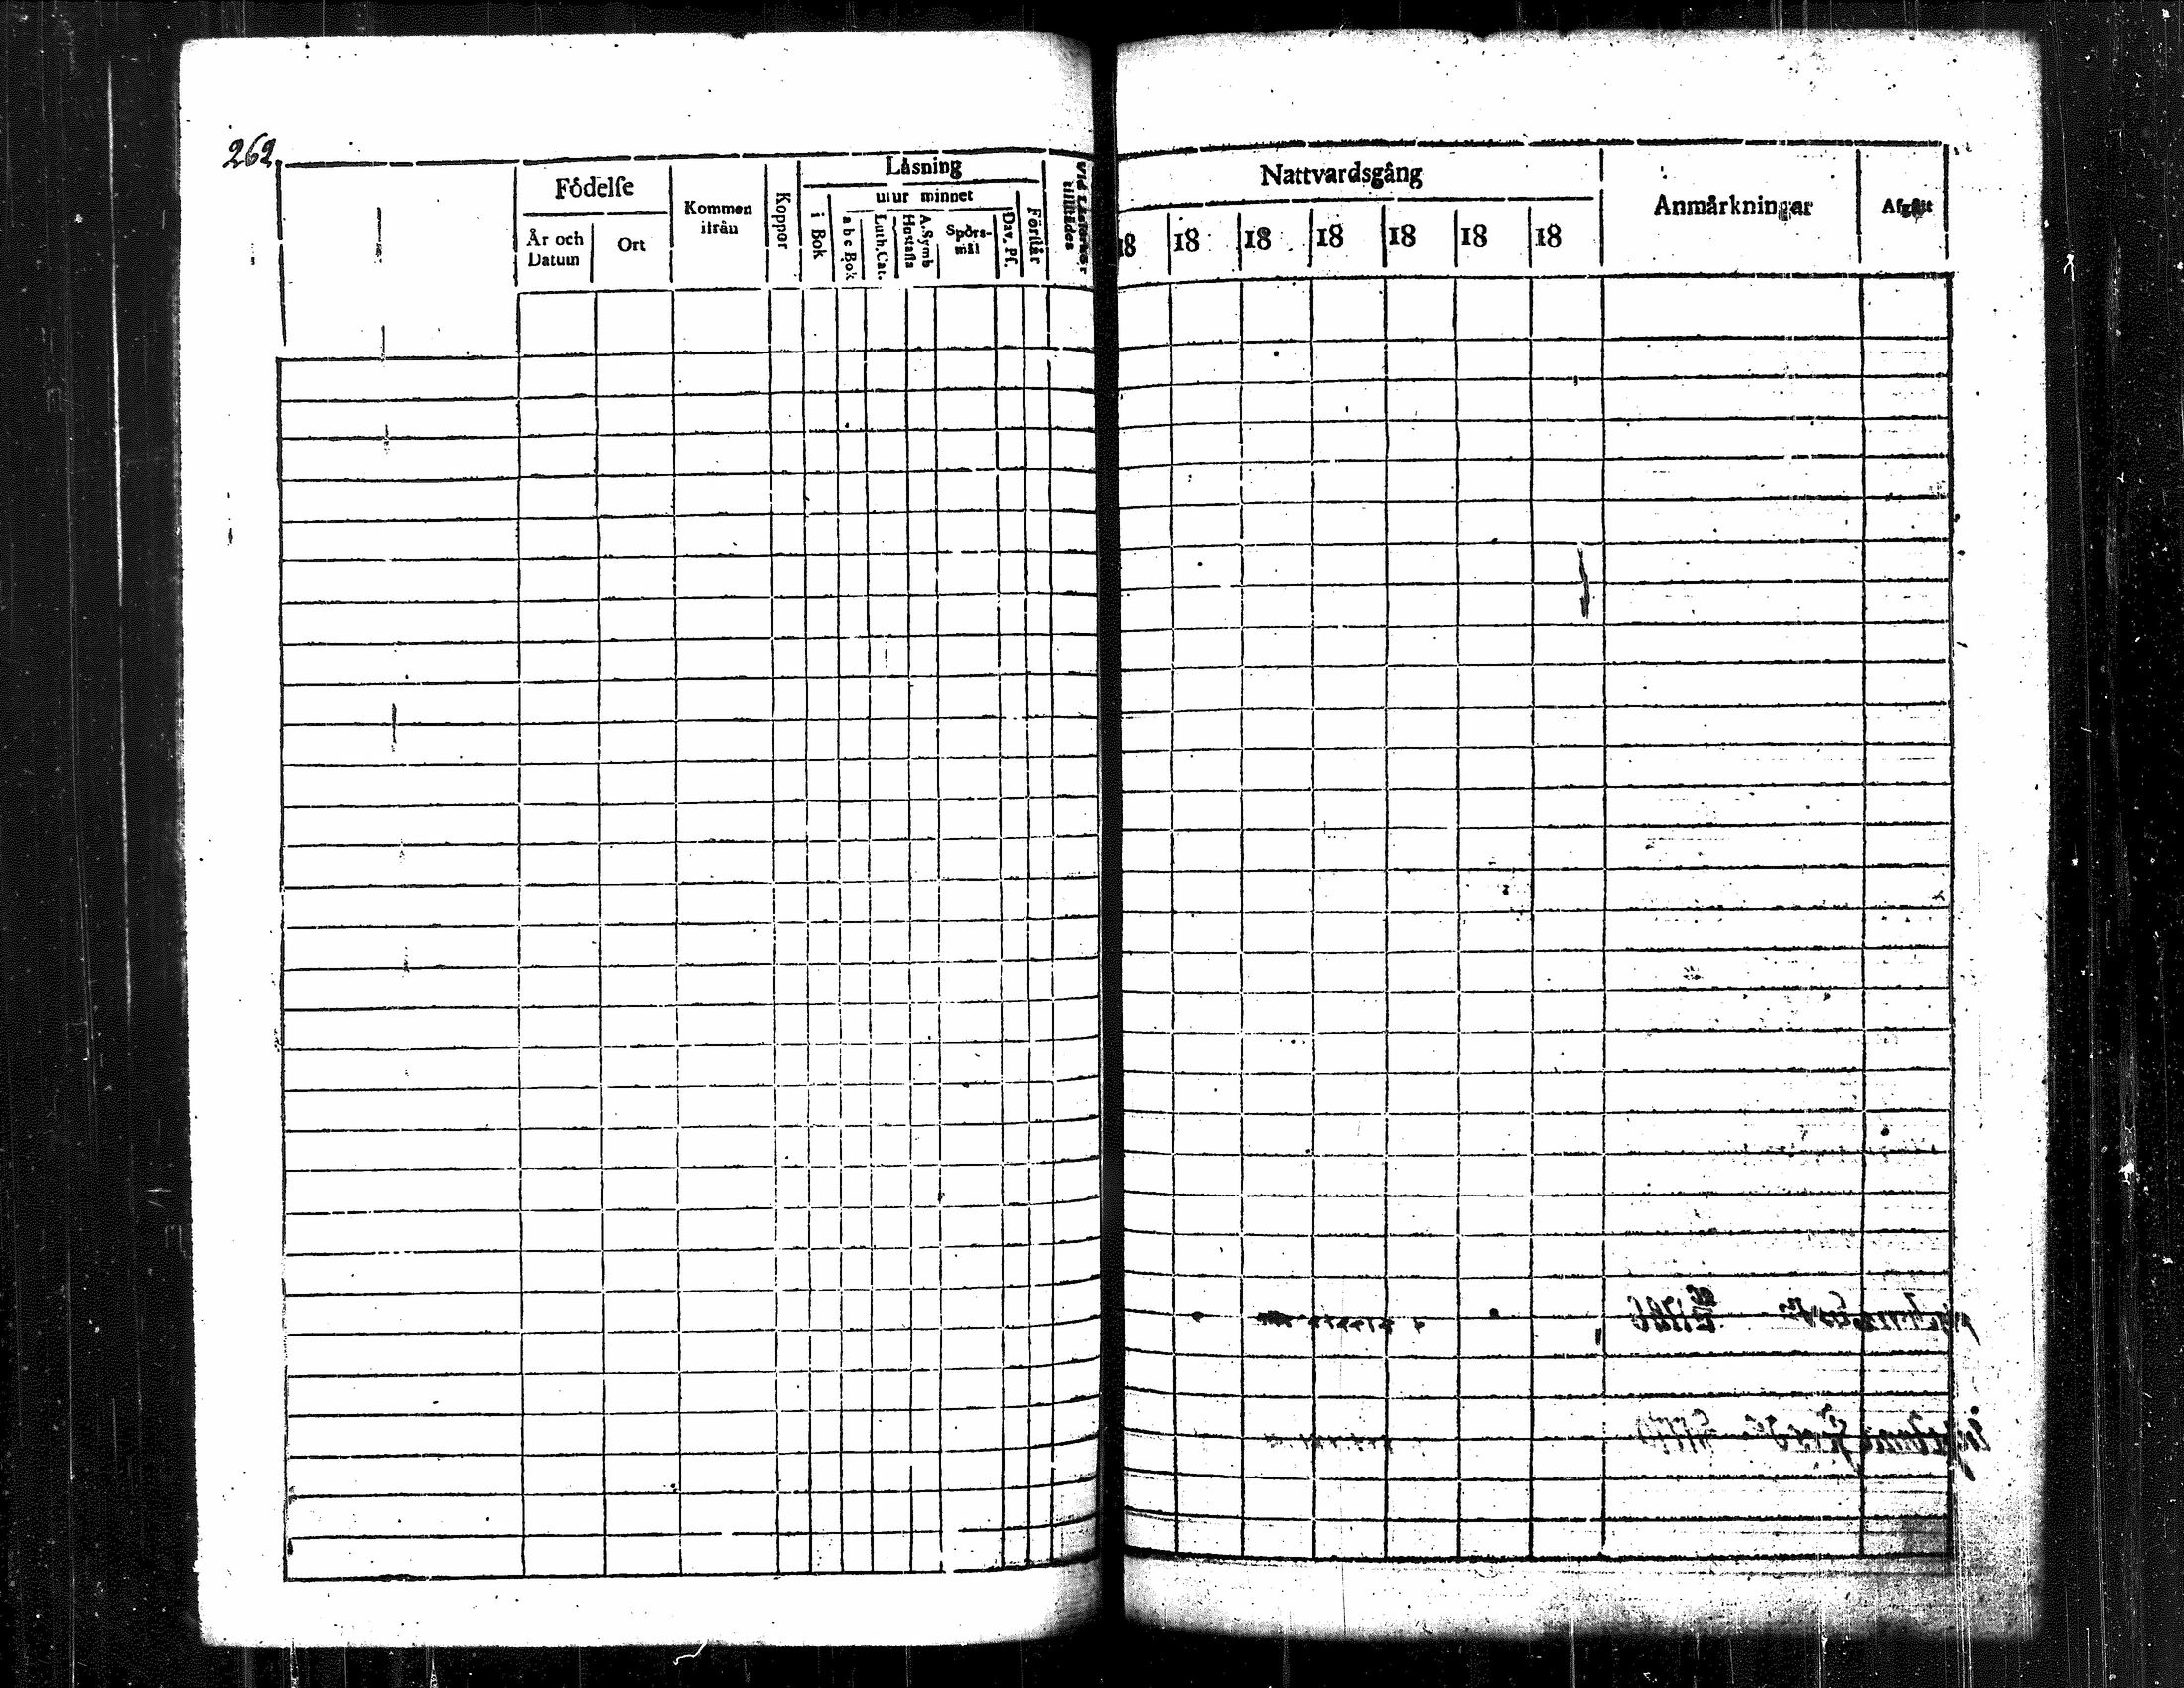 262.
Födelse
År och Datum
Ort
Kommen ifrån
Koppor
Läsning
i Bok
utur minnet
a b c Bok
Luth. Cat.
A. Symb Hustafla
Spörs-mål
Dav. Ps.
Förstår
Vid Läsförhör tillstädes
Nattvardsgång
18 18 18 18 18 18 18
Anmärkningar
Afgått